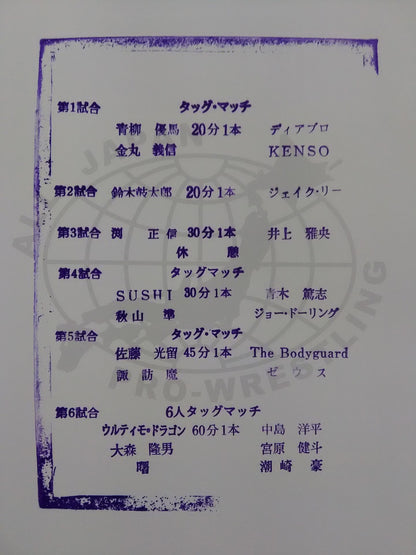 第1試合 タッグ・マッチ
青柳 優馬 20分1本 ディアブロ
金丸 義信 KENSO
第2試合 鈴木鼓太郎 20分1本 ジェイク・リー
第3試合 渕 正信 30分1本 井上 雅央
休 憩
第4試合 タッグマッチ
SUSHI 30分1本 青木 篤志
秋山 準 ジョー・ドーリング
第5試合 タッグ・マッチ
佐藤 光留 45分1本 The Bodyguard
諏訪魔 ゼウス
第6試合 6人タッグマッチ
ウルティモ・ドラゴン 60分1本 中島 洋平
大森 隆男 宮原 健斗
曙 潮崎 豪
ALL JAPAN PRO-WRESTLING